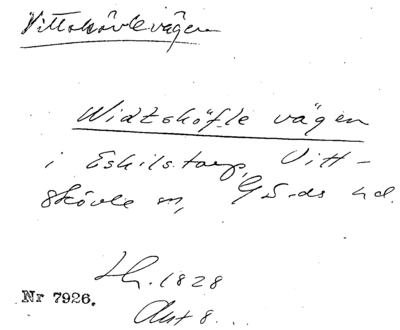 Vittskövlevägen
Widtsköfle vägen
i Eskilstorp, Vitt-
skövle sn, Gärds hd.
Hr. 1828
Nr 7926.
Akt 8...